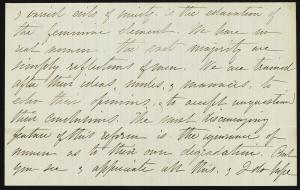 & varied evils of society, is the education of
the feminine element. We have no
real women. the vast majority are
simply reflections of men. We are trained
after their ideas, modes, & manners, to
echo their opinions, to accept unquestioned
their conclusions. The most discouraging
feature of this reform is the ignorance of
women as to their own degradation. But
you see & appreciate all this, & I do hope